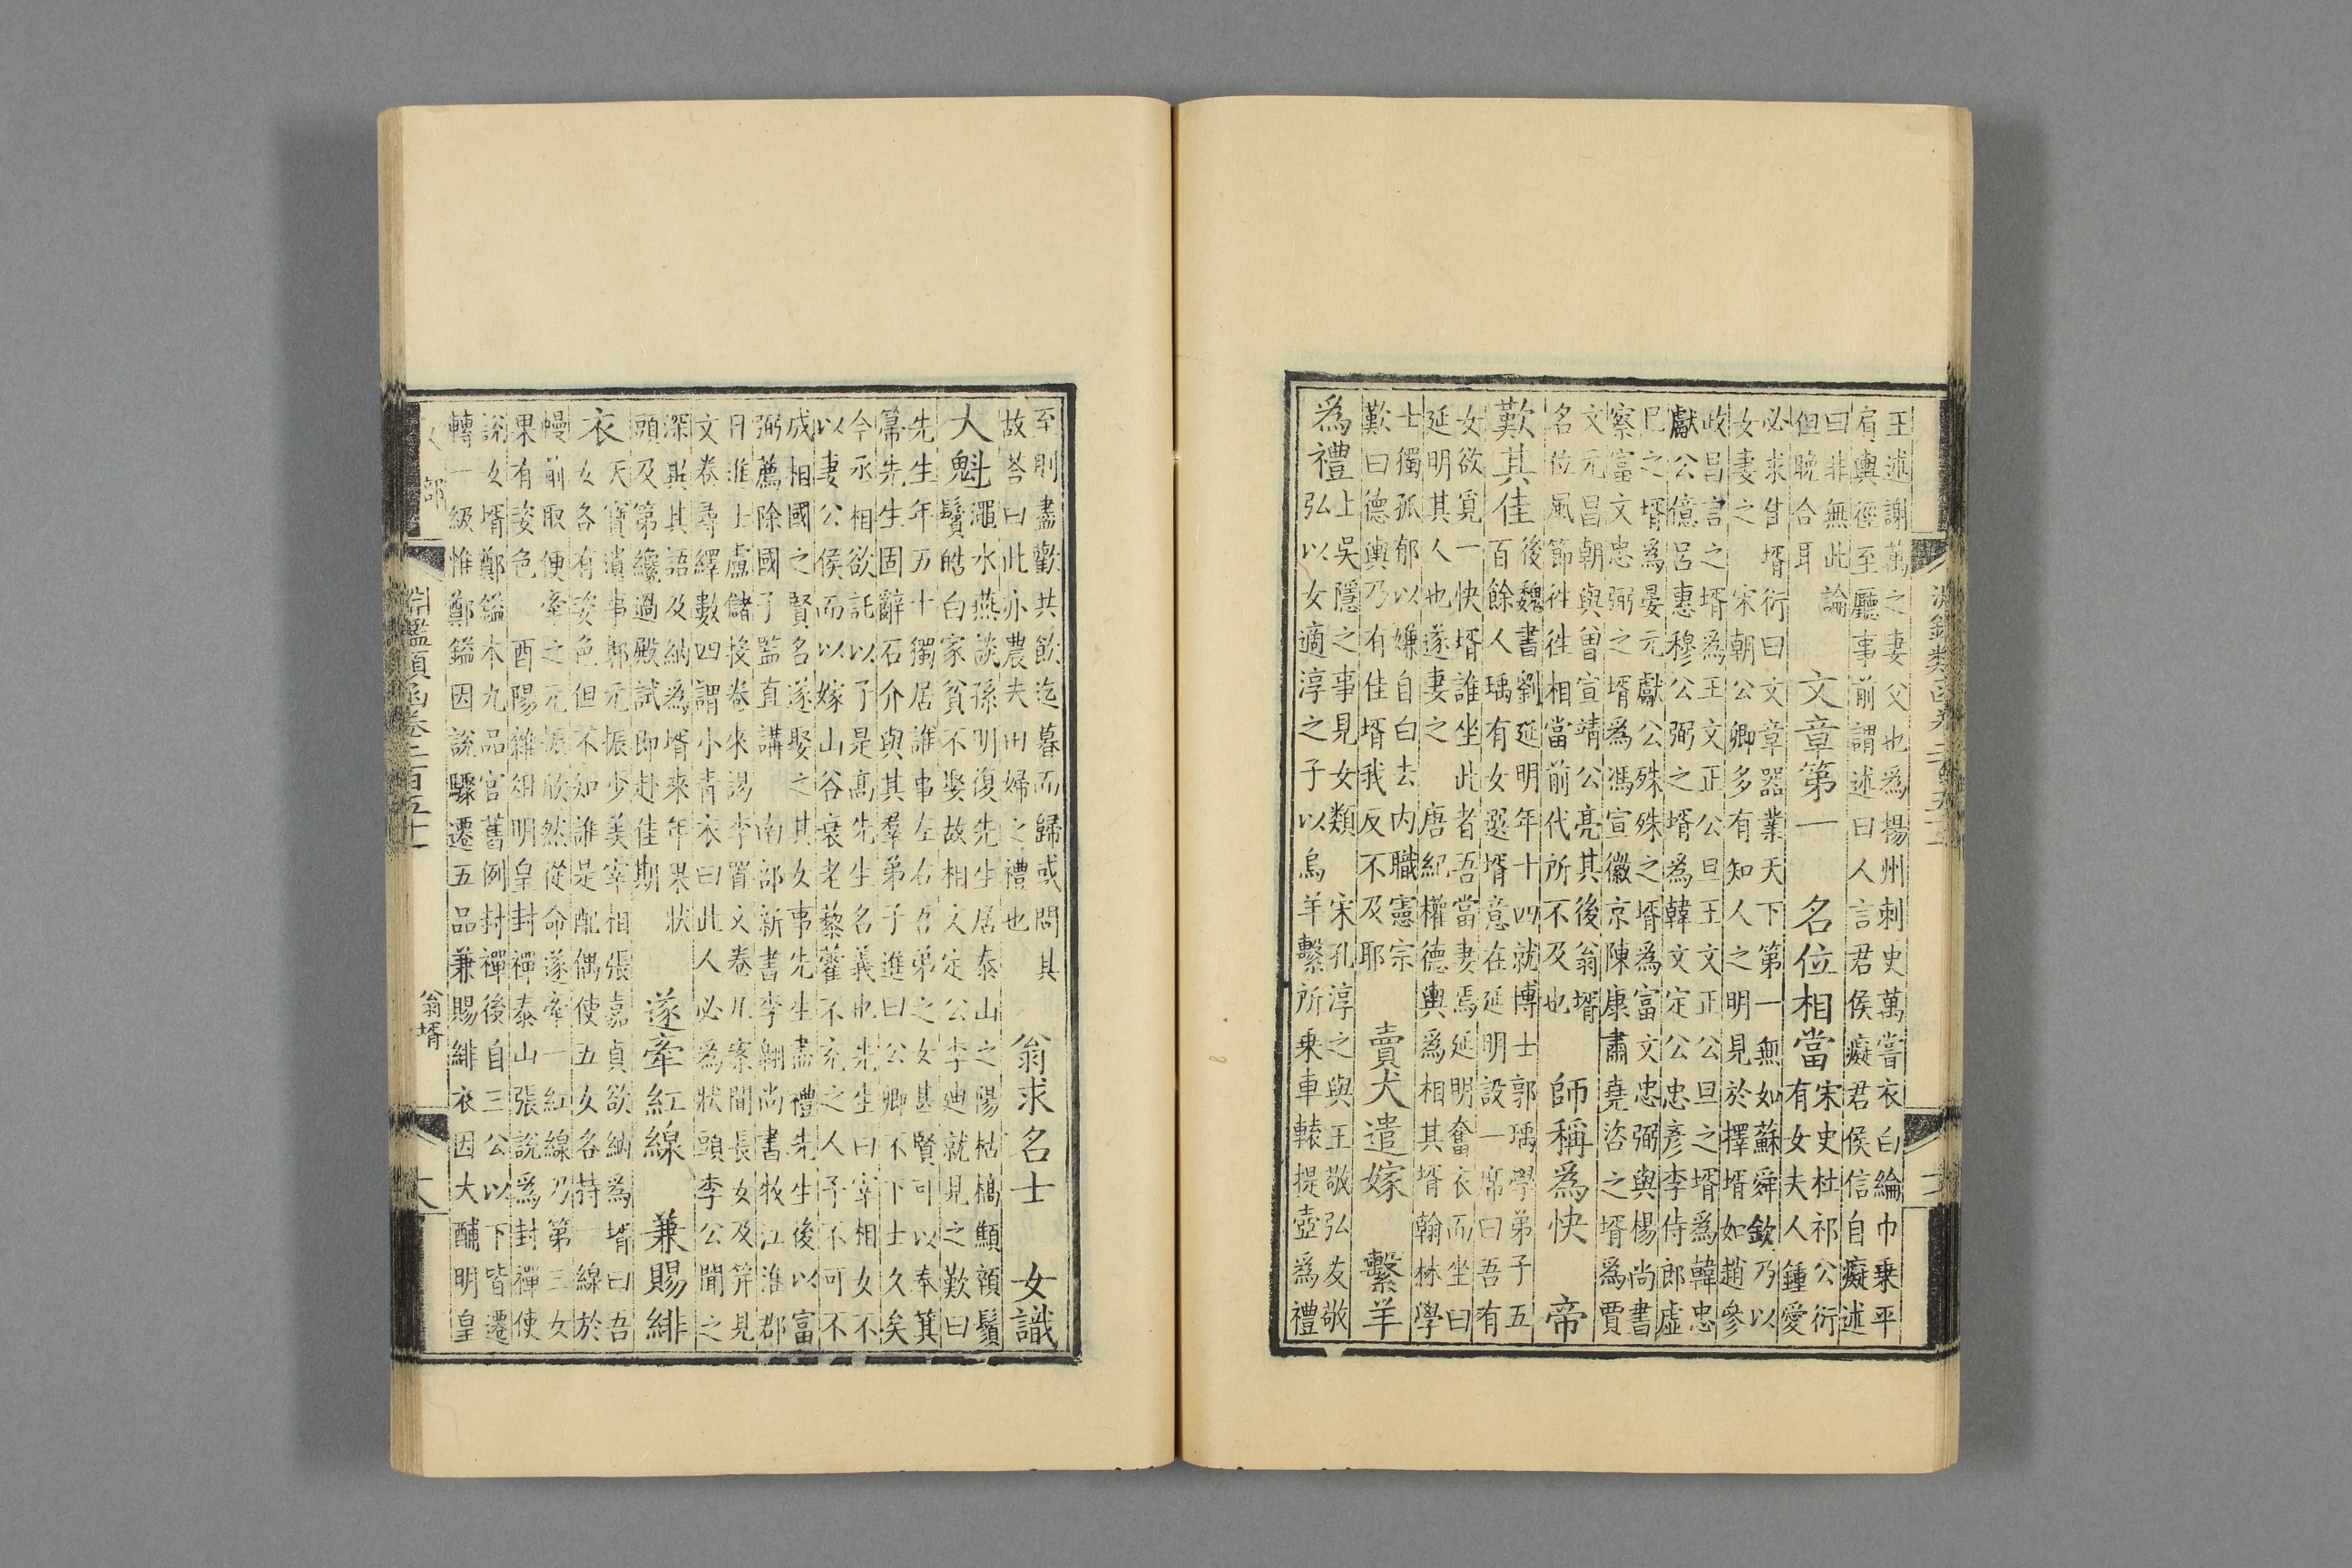 王述謝萬之妻父也為揚州刺史萬嘗衣白綸巾乗平
肩輿徑至廳事前謂述曰人言君侯癡君侯信自癡述
曰非無此論
但晚合耳
文章第一　名位相當
宋史杜祁公衍
有女夫人鍾愛
必求佳壻衍曰文章器業天下第一無如蘇舜欽乃以
女妻之　宋朝公卿多有知人之明見於擇壻如趙參
政昌言之壻為王文正公旦王文正公旦之壻為韓忠
獻公億呂惠穆公弼之壻為韓文定公忠彥李侍郎虛
已之壻為晏元獻公殊殊之壻為富文忠弼與楊尚書
察富文忠弼之壻為馮宣徽京陳康肅堯咨之壻為賈
文元昌朝與曾宣靖公亮其後翁壻
名位風節徃徃相當前代所不及也
師稱為快　帝
歎其佳
後魏書劉延明年十四就博士郭瑀學弟子五
百餘人瑀有女選壻意在延明設一席曰吾有
女欲覓一快壻誰坐此者吾當妻焉延明奮衣而坐曰
延明其人也遂妻之　唐紀權德輿為相其壻翰林學
士獨孤郁以嫌自白去内職憲宗
歎曰德輿乃有佳壻我反不及耶
賣犬遣嫁　繫羊
為禮
上吳隱之事見女類　宋孔淳之與王敬弘友敬
弘以女適淳之子以烏羊繫所乗車轅提壺為禮
至則盡歡共飲迄暮而歸或問其
故荅曰此亦農夫田婦之禮也
翁求名士　女識
大魁
澠水燕談孫明復先生居泰山之陽枯槁顦顇鬚
鬢皓白家貧不娶故相文定公李迪就見之歎曰
先生年五十獨居誰事左右吾弟之女甚賢可以奉箕
箒先生固辭石介與其羣弟子進曰公卿不下士久矣
今丞相欲託以子是髙先生名義也先生曰宰相女不
以妻公侯而以嫁山谷衰老藜藿不充之人予不可不
成相國之賢名遂娶之其女事先生盡禮先生後以富
弼薦除國子監直講　南部新書李翺尚書牧江淮郡
日進士盧儲投卷來謁李置文卷几案間長女及笄見
文卷尋繹數四謂小青衣曰此人必為狀頭李公聞之
深異其語及納為壻来年果狀
頭及第纔過殿試即赴佳期
遂牽紅線　兼賜緋
衣
天寶遺事郭元振少美宰相張嘉貞欲納為壻曰吾
女各有姿色但不知誰是配偶使五女各持一線於
幔前取便牽之元振欣然從命遂牽一紅線乃第三女
果有姿色　酉陽雜俎明皇封禪泰山張說為封禪使
說女壻鄭鎰本九品官舊例封禪後自三公以下皆遷
轉一級惟鄭鎰因說驟遷五品兼賜緋衣因大酺明皇
翁壻